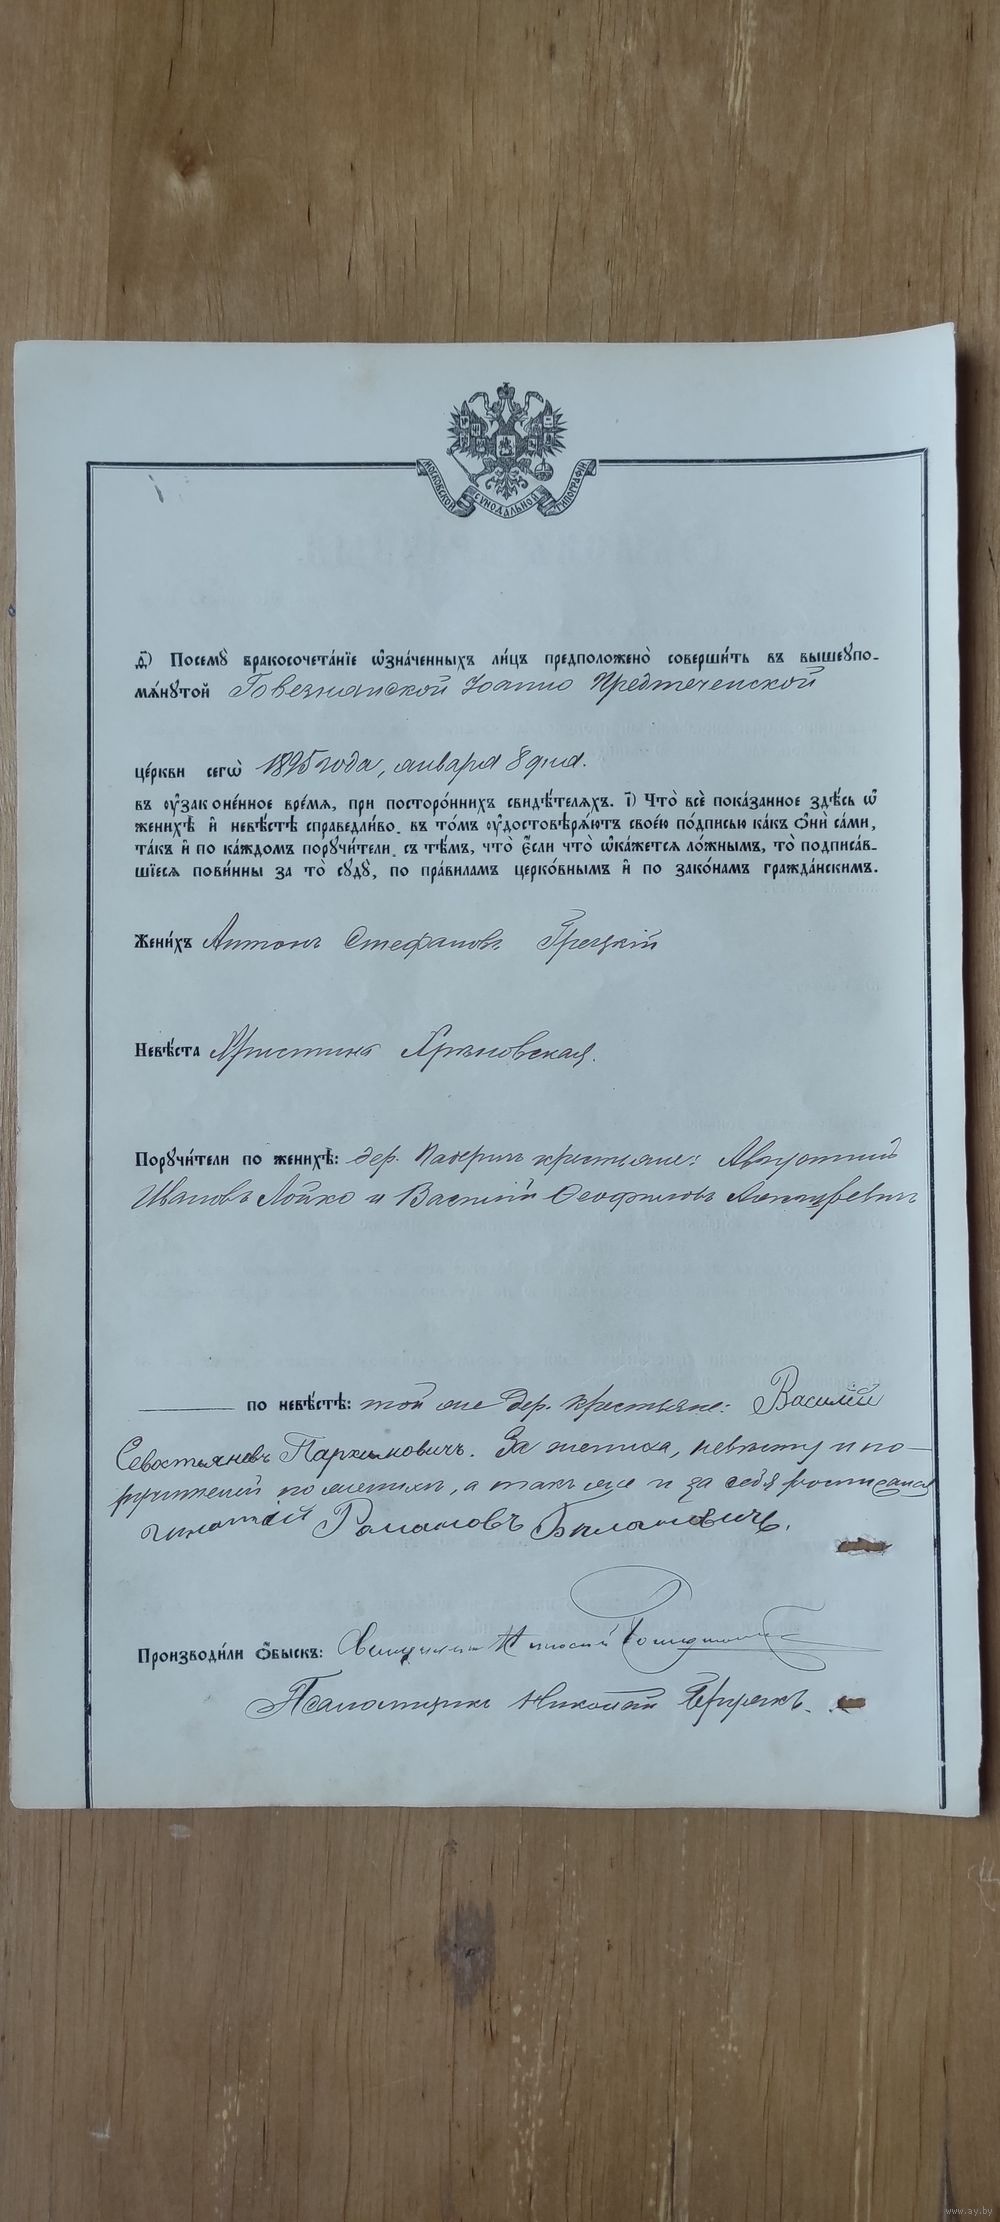 МОСКОВСКОЙ СѴНОДАЛЬНОЙ ТИПОГРАФІИ
д҃і) Посемꙋ̀ бракосочета́нїе ѡ҆зна́ченныхъ ли́цъ предположено̀ соверши́ть въ вышеꙋпо-
мѧ́нꙋтой Говезнянской Іоанно Предтеченской
це́ркви сегѡ̀ 1895 года, января 8 дня.
въ ᲂу҆законе́нное вре́мѧ, при посторо́ннихъ свидѣ́телѧхъ. і҃) Что̀ всѐ пока́занное здѣ́сь ѡ҆
женихѣ̀ и҆ невѣ́стѣ справедли́во, въ то́мъ ᲂу҆достовѣрѧ́ютъ свое́ю по́дписью ка́къ ѻ҆нѝ са́ми,
та́къ и҆ по ка́ждомъ порꙋчи́тели, съ тѣ́мъ, что̀ є҆́сли что̀ ѡ҆ка́жется ло́жнымъ, то̀ подписа́в-
шїеся пови́нны за то̀ сꙋдꙋ̀, по пра́виламъ церко́внымъ и҆ по зако́намъ гражда́нскимъ.
Жени́хъ Антонъ Стефановъ Грецкій
Невѣ́ста Христина Хряновская.
Порꙋчи́тели по женихѣ̀: дер. крестьяне:
Ивановъ Лойко и Василій Феофиловъ
по невѣ́стѣ: той же дер. крестьяне: Василій
Севостьяновъ Пархимовичъ. За жениха, невѣсту и по-
ручителей по женихѣ, а такъ же и за себя росписался
Игнатій Романовъ Билановичъ.
Производи́ли ѻ҆́быскъ: Священникъ
Псаломщикъ Николай
www.ay.by